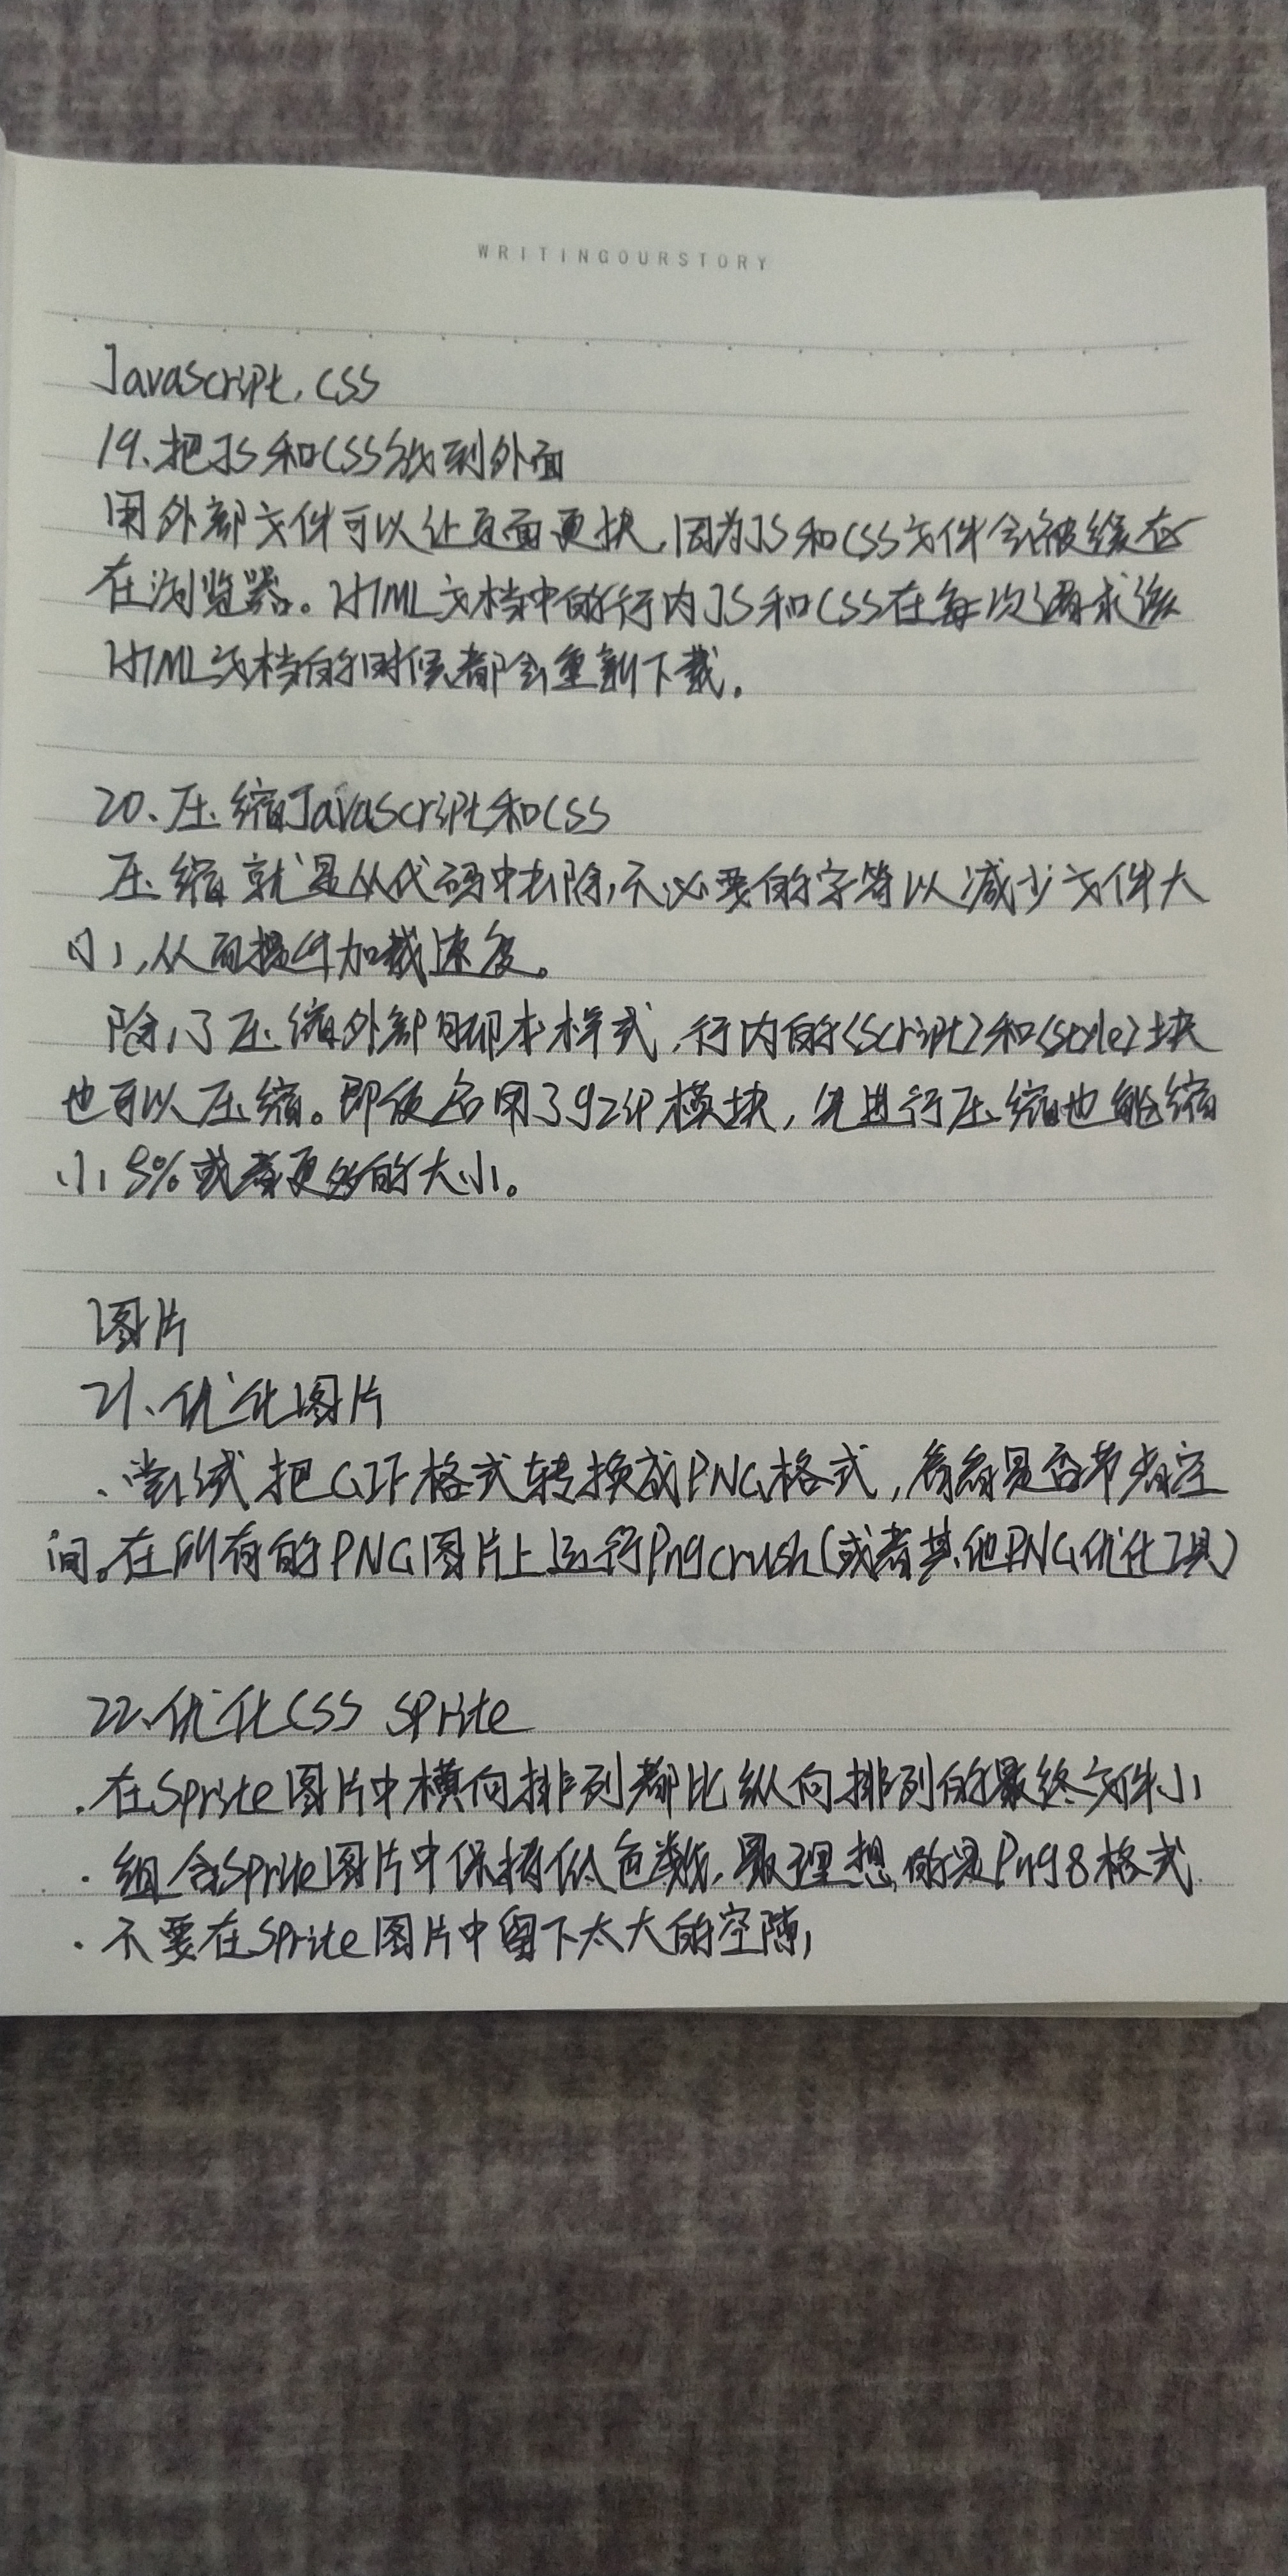 WRITINGOURSTORY
Javascript, CSS
19、把JS和CSS放到外面
用外部文件可以让页面更快,因为JS和CSS文件会被缓存
在浏览器。HTML文档中的行内JS和CSS在每次请求该
HTML文档的时候都会重新下载.
20、压缩Javascript和CSS
压缩就是从代码中去除不必要的字符以减少文件大
小,从而提升加载速度。
除了压缩外部脚本样式,行内的<script>和<style>块
也可以压缩。即使启用了gzip模块,先进行压缩也能缩
小5%或者更多的大小。
图片
21、优化图片
、尝试把GIF格式转换成PNG格式,看看是否节省空
间。在所有的PNG图片上运行Pngcrush(或者其他PNG优化工具)
22、优化CSS Sprite
.在Sprite图片中横向排列都比纵向排列的最终文件小
·组合Sprite图片中保持低色数,最理想的是Png8格式
·不要在Sprite图片中留下太大的空隙,